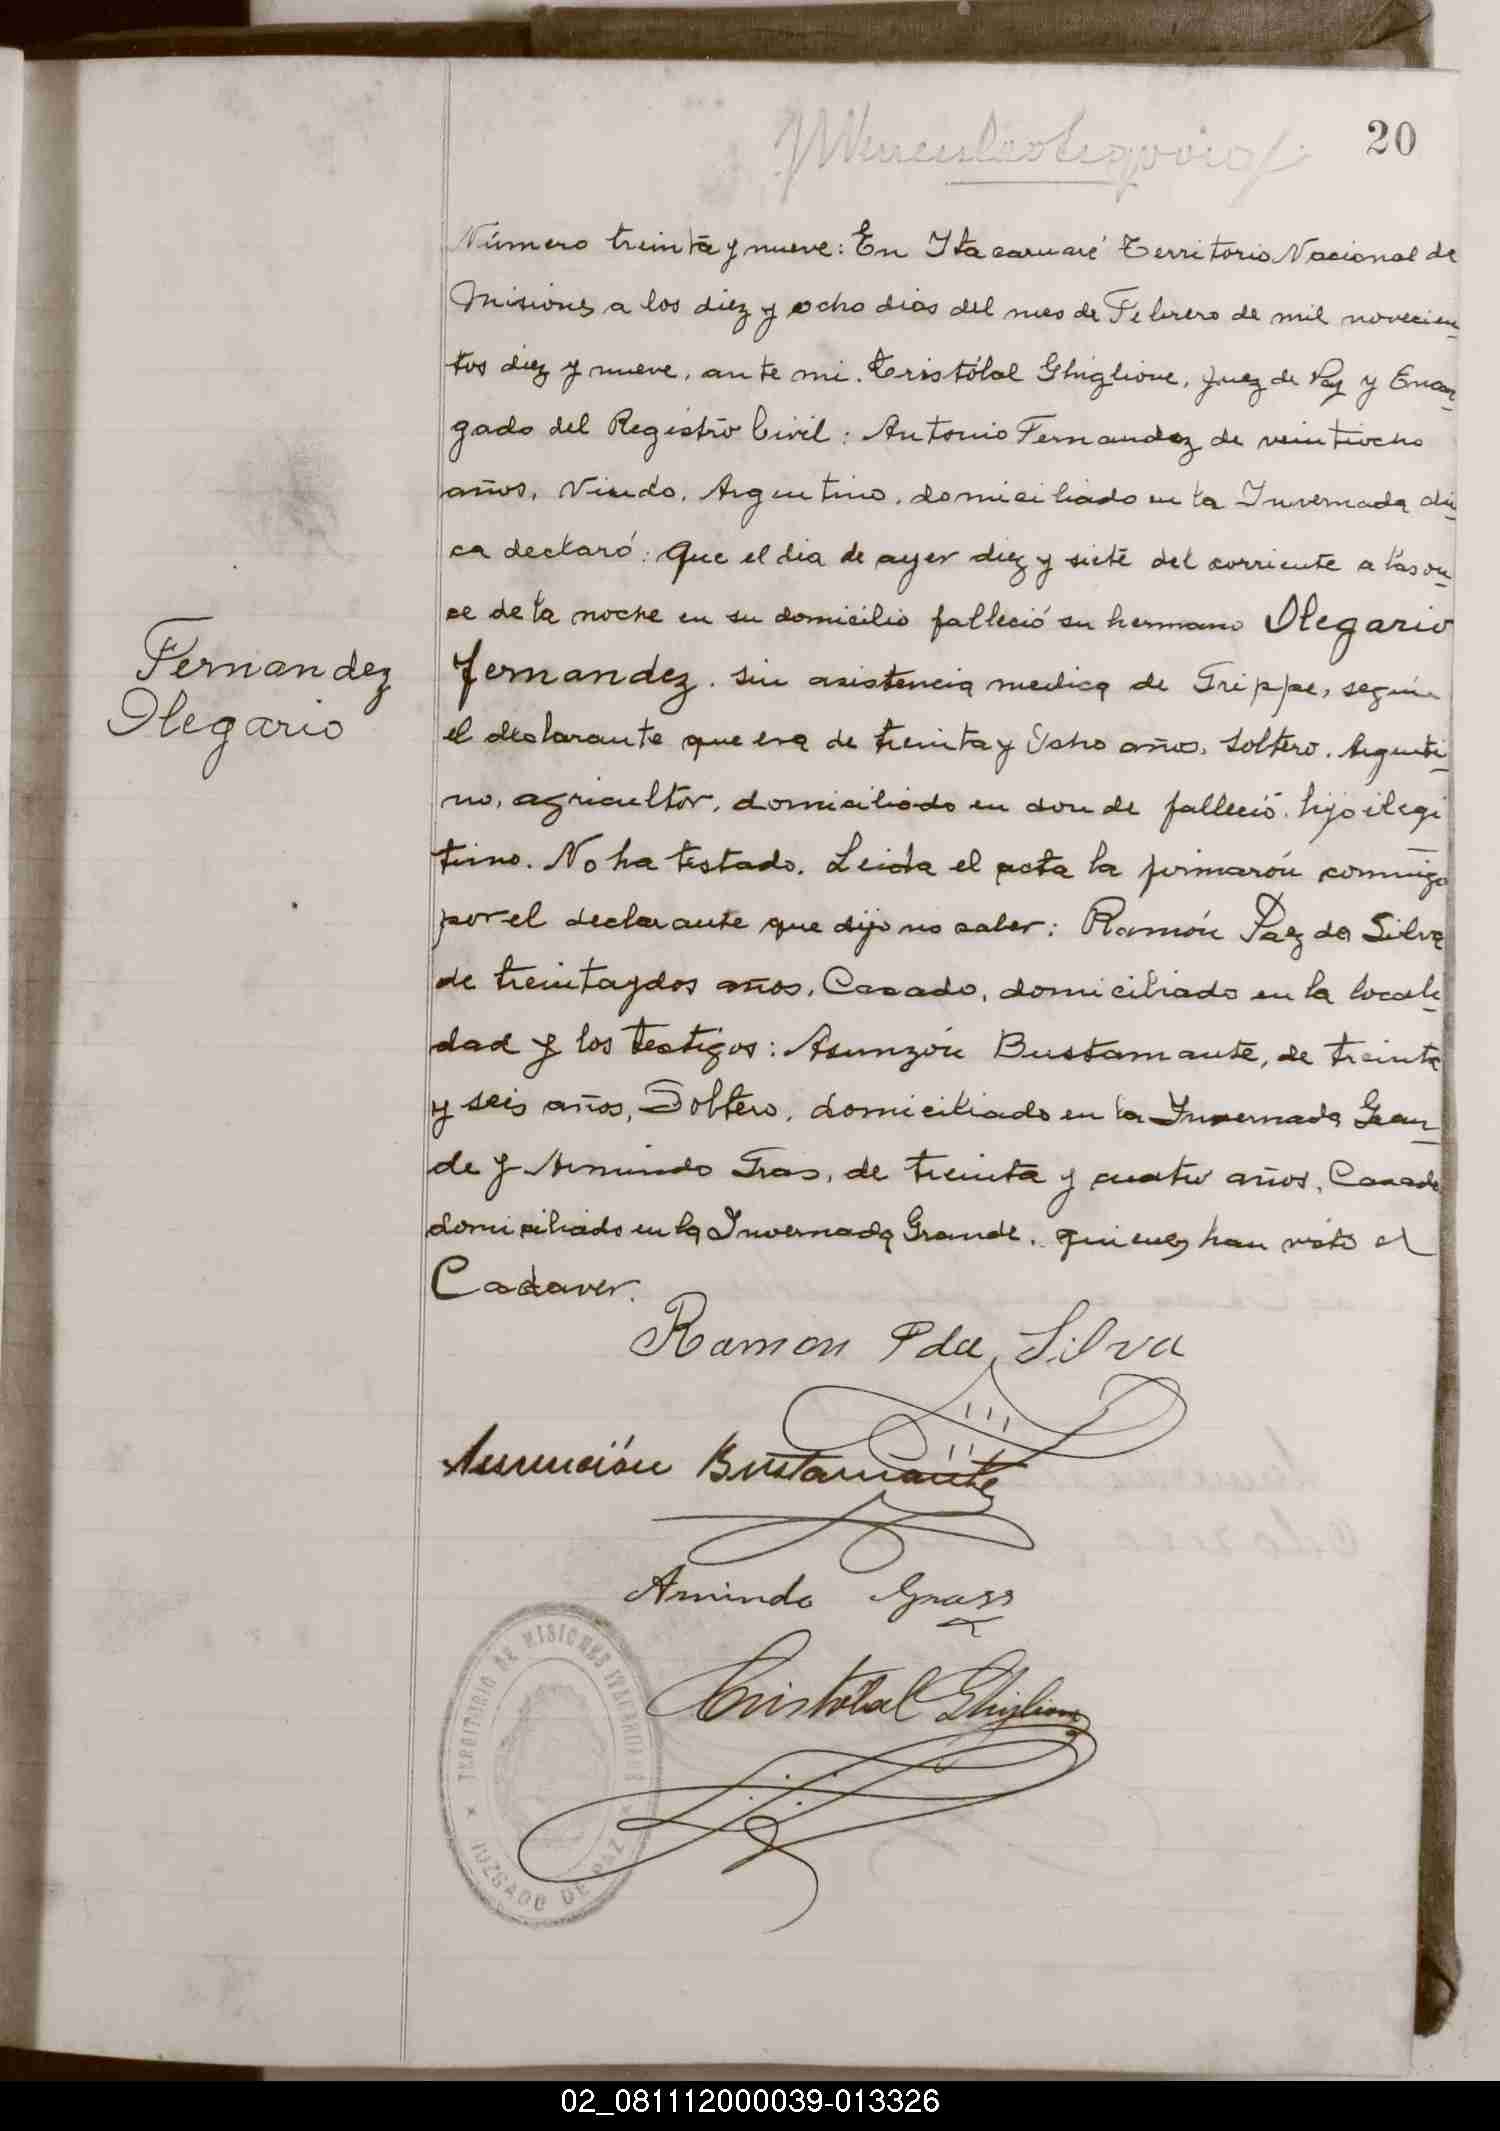 20
Número treinta y nueve: En Itacaruaré Territorio Nacional de
Misiones a los diez y ocho dias del mes de Febrero de mil novecien-
tos diez y nueve, ante mi. Cristóbal Ghiglione, Juez de Paz y Encar-
gado del Registro Civil: Antonio Fernandez de veintiocho
años, Viudo, Argentino, domiciliado en la Invernada
ca declaró: Que el dia de ayer diez y siete del corriente a las on-
ce de la noche en su domicilio falleció su hermano Olegario
Fernandez. sin asistencia medica de Grippe, según
el declarante que era de treinta y Ocho años, Soltero, Argenti-
no, agricultor, domiciliado en donde falleció, hijo ilegi-
timo. No ha testado. Leida el acta la firmarón conmigo
por el declarante que dijo no saber: Ramón Paz da Silva
de treinta y dos años, Casado, domiciliado en la locali-
dad y los testigos: Asunzón Bustamante, de treinta
y seis años, Soltero, domiciliado en la Invernada Gran-
de y Armindo Gras, de treinta y cuatro años, Casado
domiciliado en la Invernada Grande, quienes han visto el
Cadaver.
Fernandez
Olegario
Ramon P da Silva
Asunción Bustamante
Armindo Grass
Cristóbal Ghiglione
TERRITORIO DE MISIONES ITACARUARE
JUZGADO DE PAZ
02_081112000039-013326